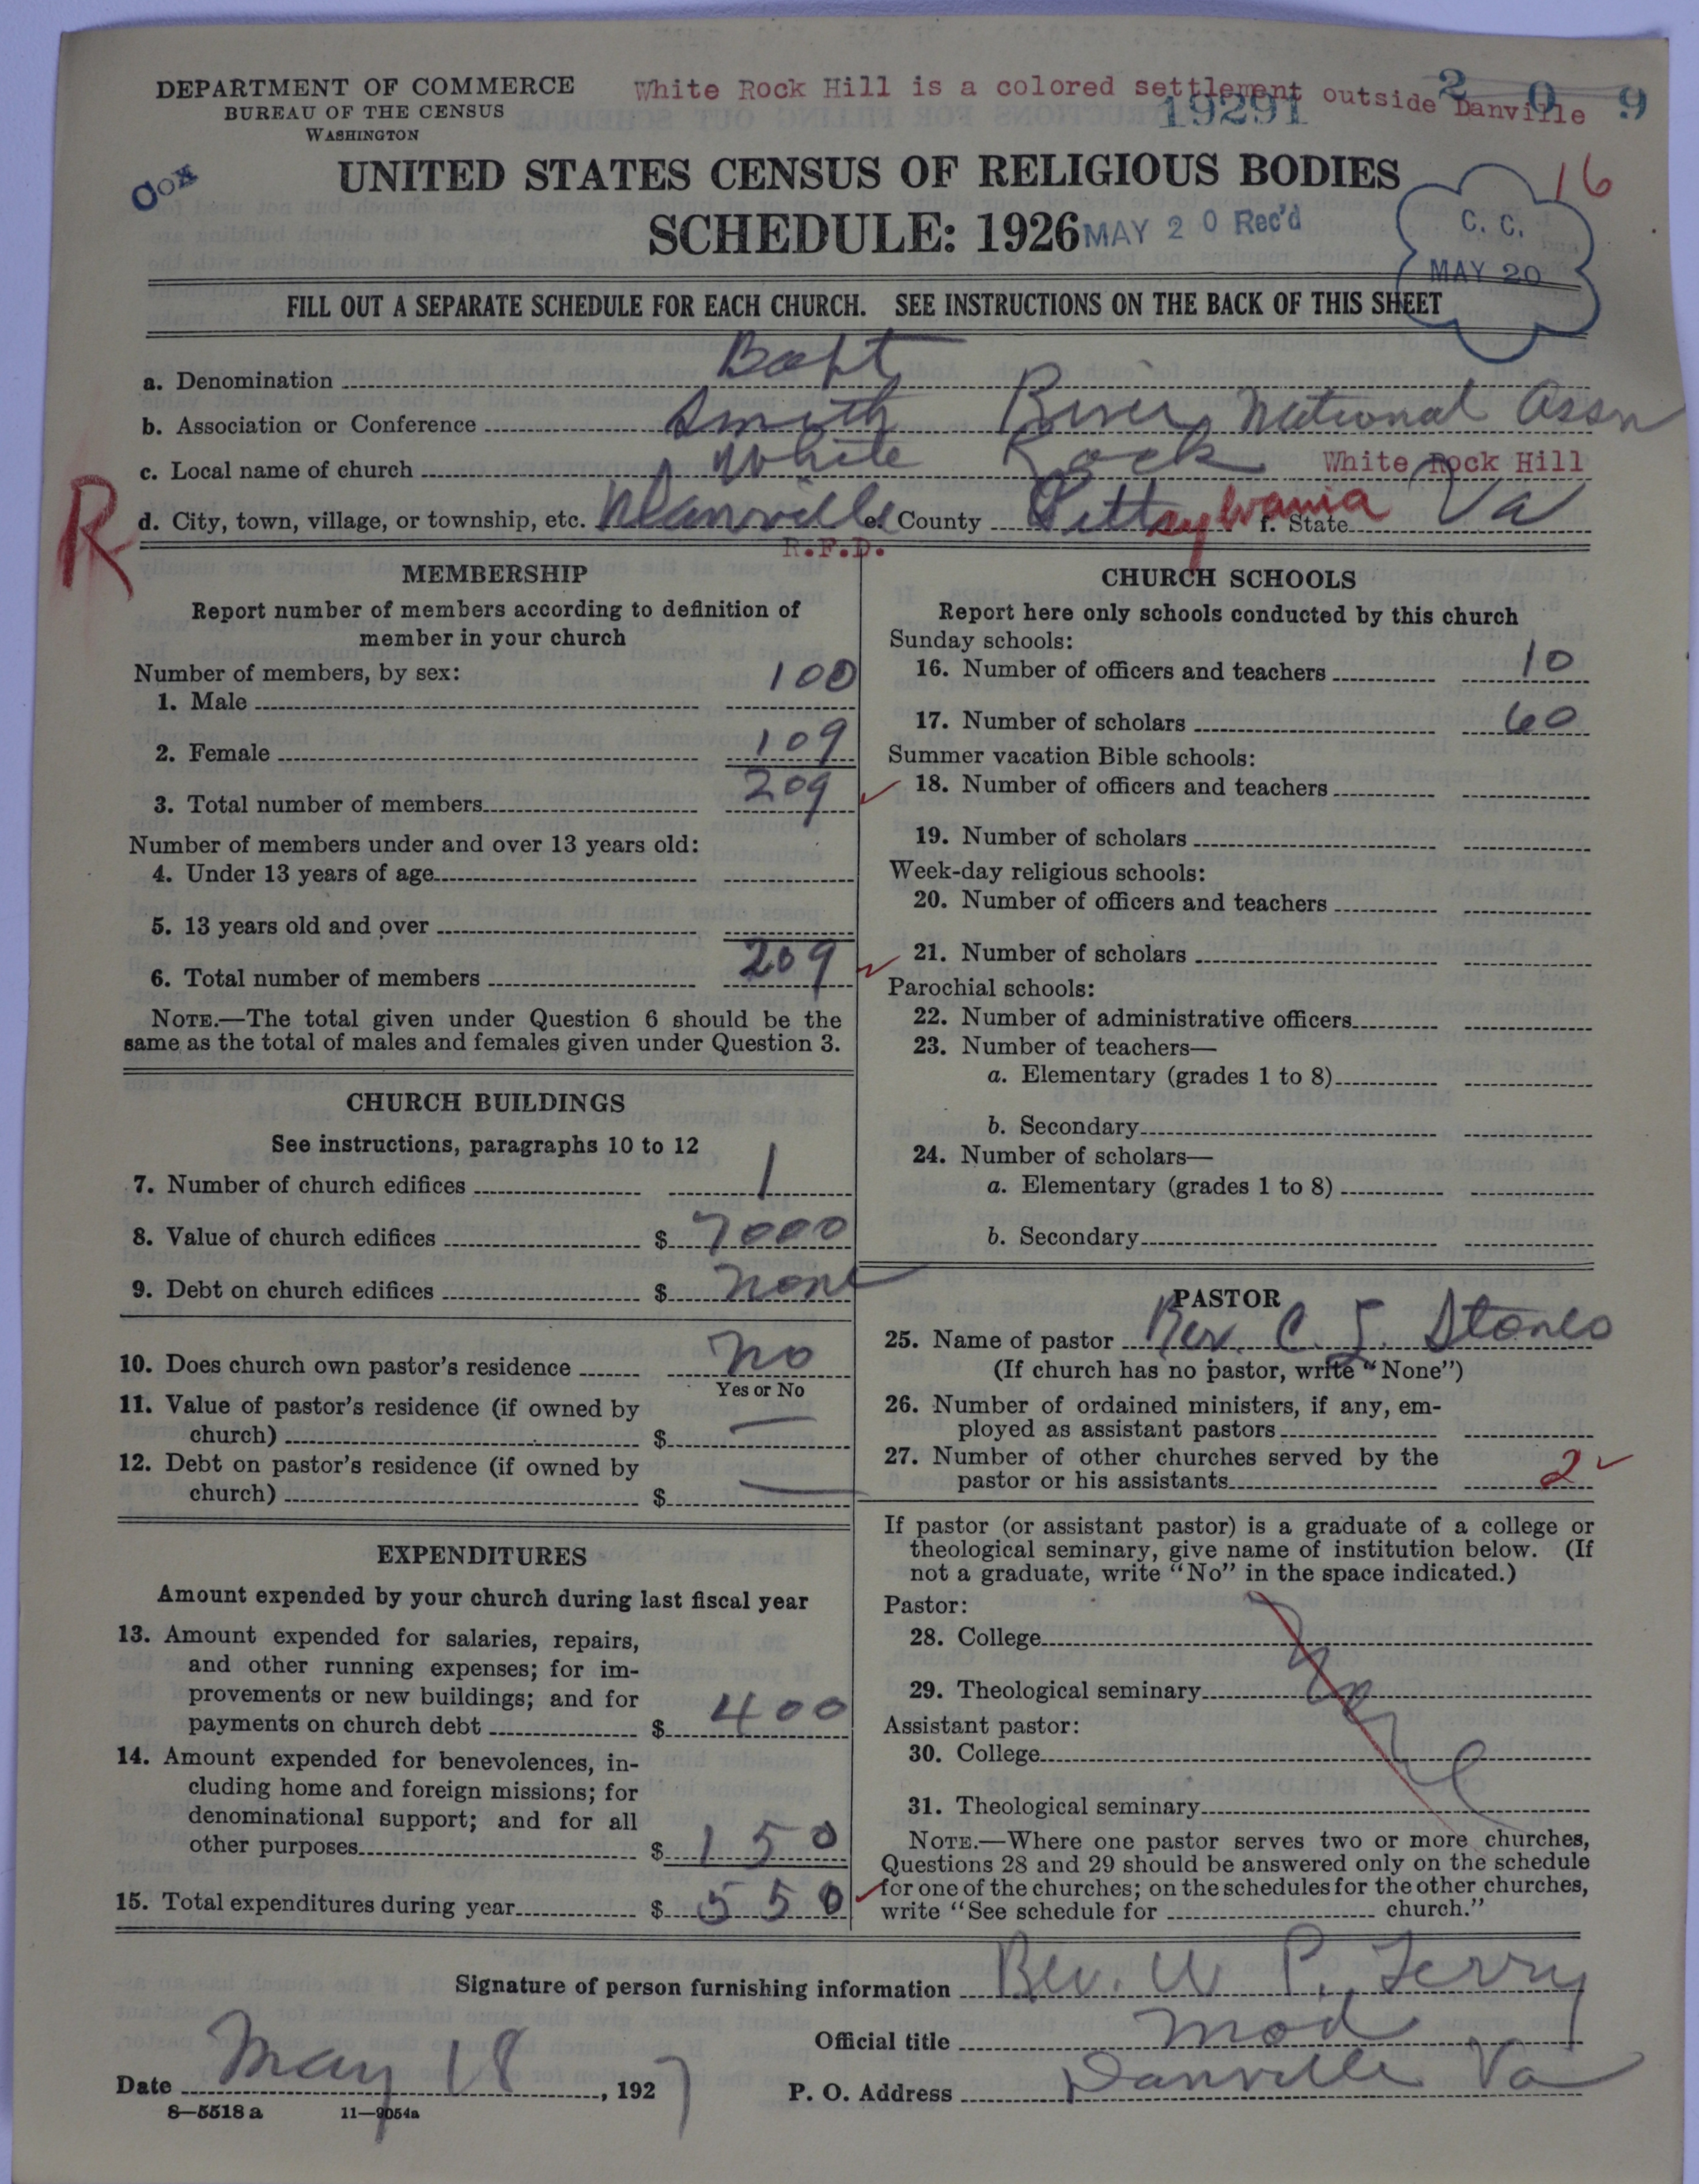 DEPARTMENT OF COMMERCE
BUREAU OF THE CENSUS
WASHINGTON
White Rock Hill is a colored settlement outside Danville
19291
2 0 9
Cox
UNITED STATES CENSUS OF RELIGIOUS BODIES
16
SCHEDULE: 1926
MAY 20 Rec'd
C. C.
MAY 20
FILL OUT A SEPARATE SCHEDULE FOR EACH CHURCH. SEE INSTRUCTIONS ON THE BACK OF THIS SHEET
a. Denomination Bapt
b. Association or Conference Smith River National Assn
c. Local name of church White Rock White Rock Hill
R
d. City, town, village, or township, etc. Danville e. County Pittsylvania f. State Va
R.F.D.
MEMBERSHIP
Report number of members according to definition of
member in your church
Number of members, by sex:
1. Male 100
2. Female 109
3. Total number of members 209
Number of members under and over 13 years old:
4. Under 13 years of age
5. 13 years old and over
6. Total number of members 209
NOTE.—The total given under Question 6 should be the
same as the total of males and females given under Question 3.
CHURCH BUILDINGS
See instructions, paragraphs 10 to 12
7. Number of church edifices 1
8. Value of church edifices $ 7000
9. Debt on church edifices $ none
10. Does church own pastor's residence No
Yes or No
11. Value of pastor's residence (if owned by
church) $ —
12. Debt on pastor's residence (if owned by
church) $ —
EXPENDITURES
Amount expended by your church during last fiscal year
13. Amount expended for salaries, repairs,
and other running expenses; for im-
provements or new buildings; and for
payments on church debt $ 400
14. Amount expended for benevolences, in-
cluding home and foreign missions; for
denominational support; and for all
other purposes $ 150
15. Total expenditures during year $ 550
CHURCH SCHOOLS
Report here only schools conducted by this church
Sunday schools:
16. Number of officers and teachers 10
17. Number of scholars 60
Summer vacation Bible schools:
18. Number of officers and teachers
19. Number of scholars
Week-day religious schools:
20. Number of officers and teachers
21. Number of scholars
Parochial schools:
22. Number of administrative officers
23. Number of teachers—
a. Elementary (grades 1 to 8)
b. Secondary
24. Number of scholars—
a. Elementary (grades 1 to 8)
b. Secondary
PASTOR
25. Name of pastor Rev. C. Stones
(If church has no pastor, write "None")
26. Number of ordained ministers, if any, em-
ployed as assistant pastors
27. Number of other churches served by the
pastor or his assistants 2
If pastor (or assistant pastor) is a graduate of a college or
theological seminary, give name of institution below. (If
not a graduate, write "No" in the space indicated.)
Pastor:
28. College
29. Theological seminary
Assistant pastor:
30. College
31. Theological seminary
None
NOTE.—Where one pastor serves two or more churches,
Questions 28 and 29 should be answered only on the schedule
for one of the churches; on the schedules for the other churches,
write "See schedule for church."
Signature of person furnishing information Rev. W P. Terry
Official title Mod
Date May 18, 1927
P. O. Address Danville Va
8—5518 a 11—9054a